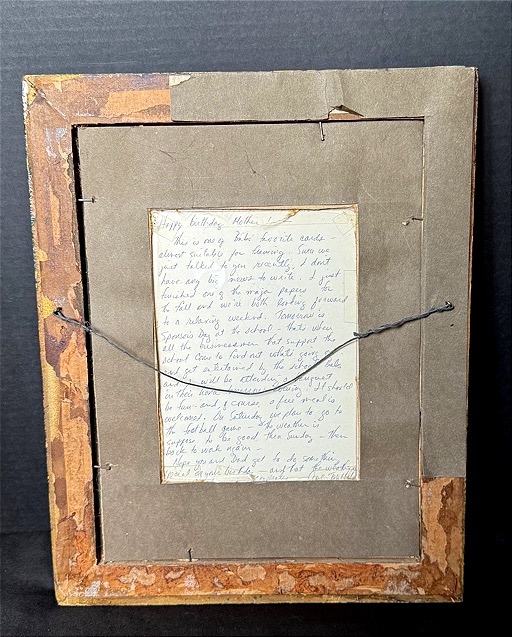 Happy birthday Mother!
This is one of Bab's favorite cards
almost suitable for framing. Since we
just talked to you recently, I don't
have any big news to write. I just
finished one of the major papers for
the fall and we're both looking forward
to a relaxing weekend. Tomorrow is
Sponsors Day at the school - that's when
all the businessmen that support the
school come to find out what's going on
and get entertained by the school. Babs
and I will be attending a banquet
in their honor tomorrow evening. It should
be fun - and, of course, a free meal is
welcomed. On Saturday we plan to go to
the football game - the weather is
suppose to be good then Sunday - then
back to work again -
Hope you and Dad get to do something
special on your birthday - and that the